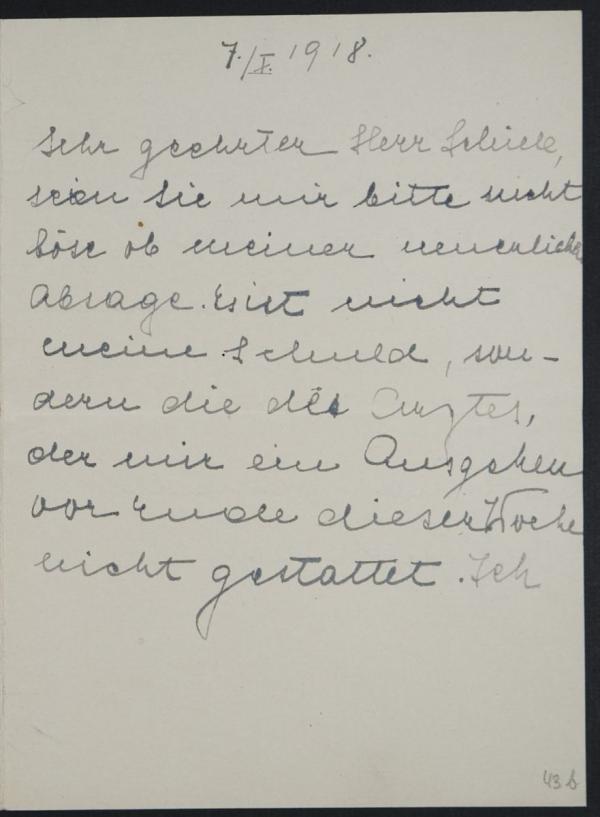 7./X. 1918.
Sehr geehrter Herr Schiele,
seien Sie mir bitte nicht
böse ob meiner neuerlichen
Absage. Es ist nicht
meine Schuld, son-
dern die des Arztes,
der mir ein Ausgehen
vor Ende dieser Woche
nicht gestattet. Ich
43 b